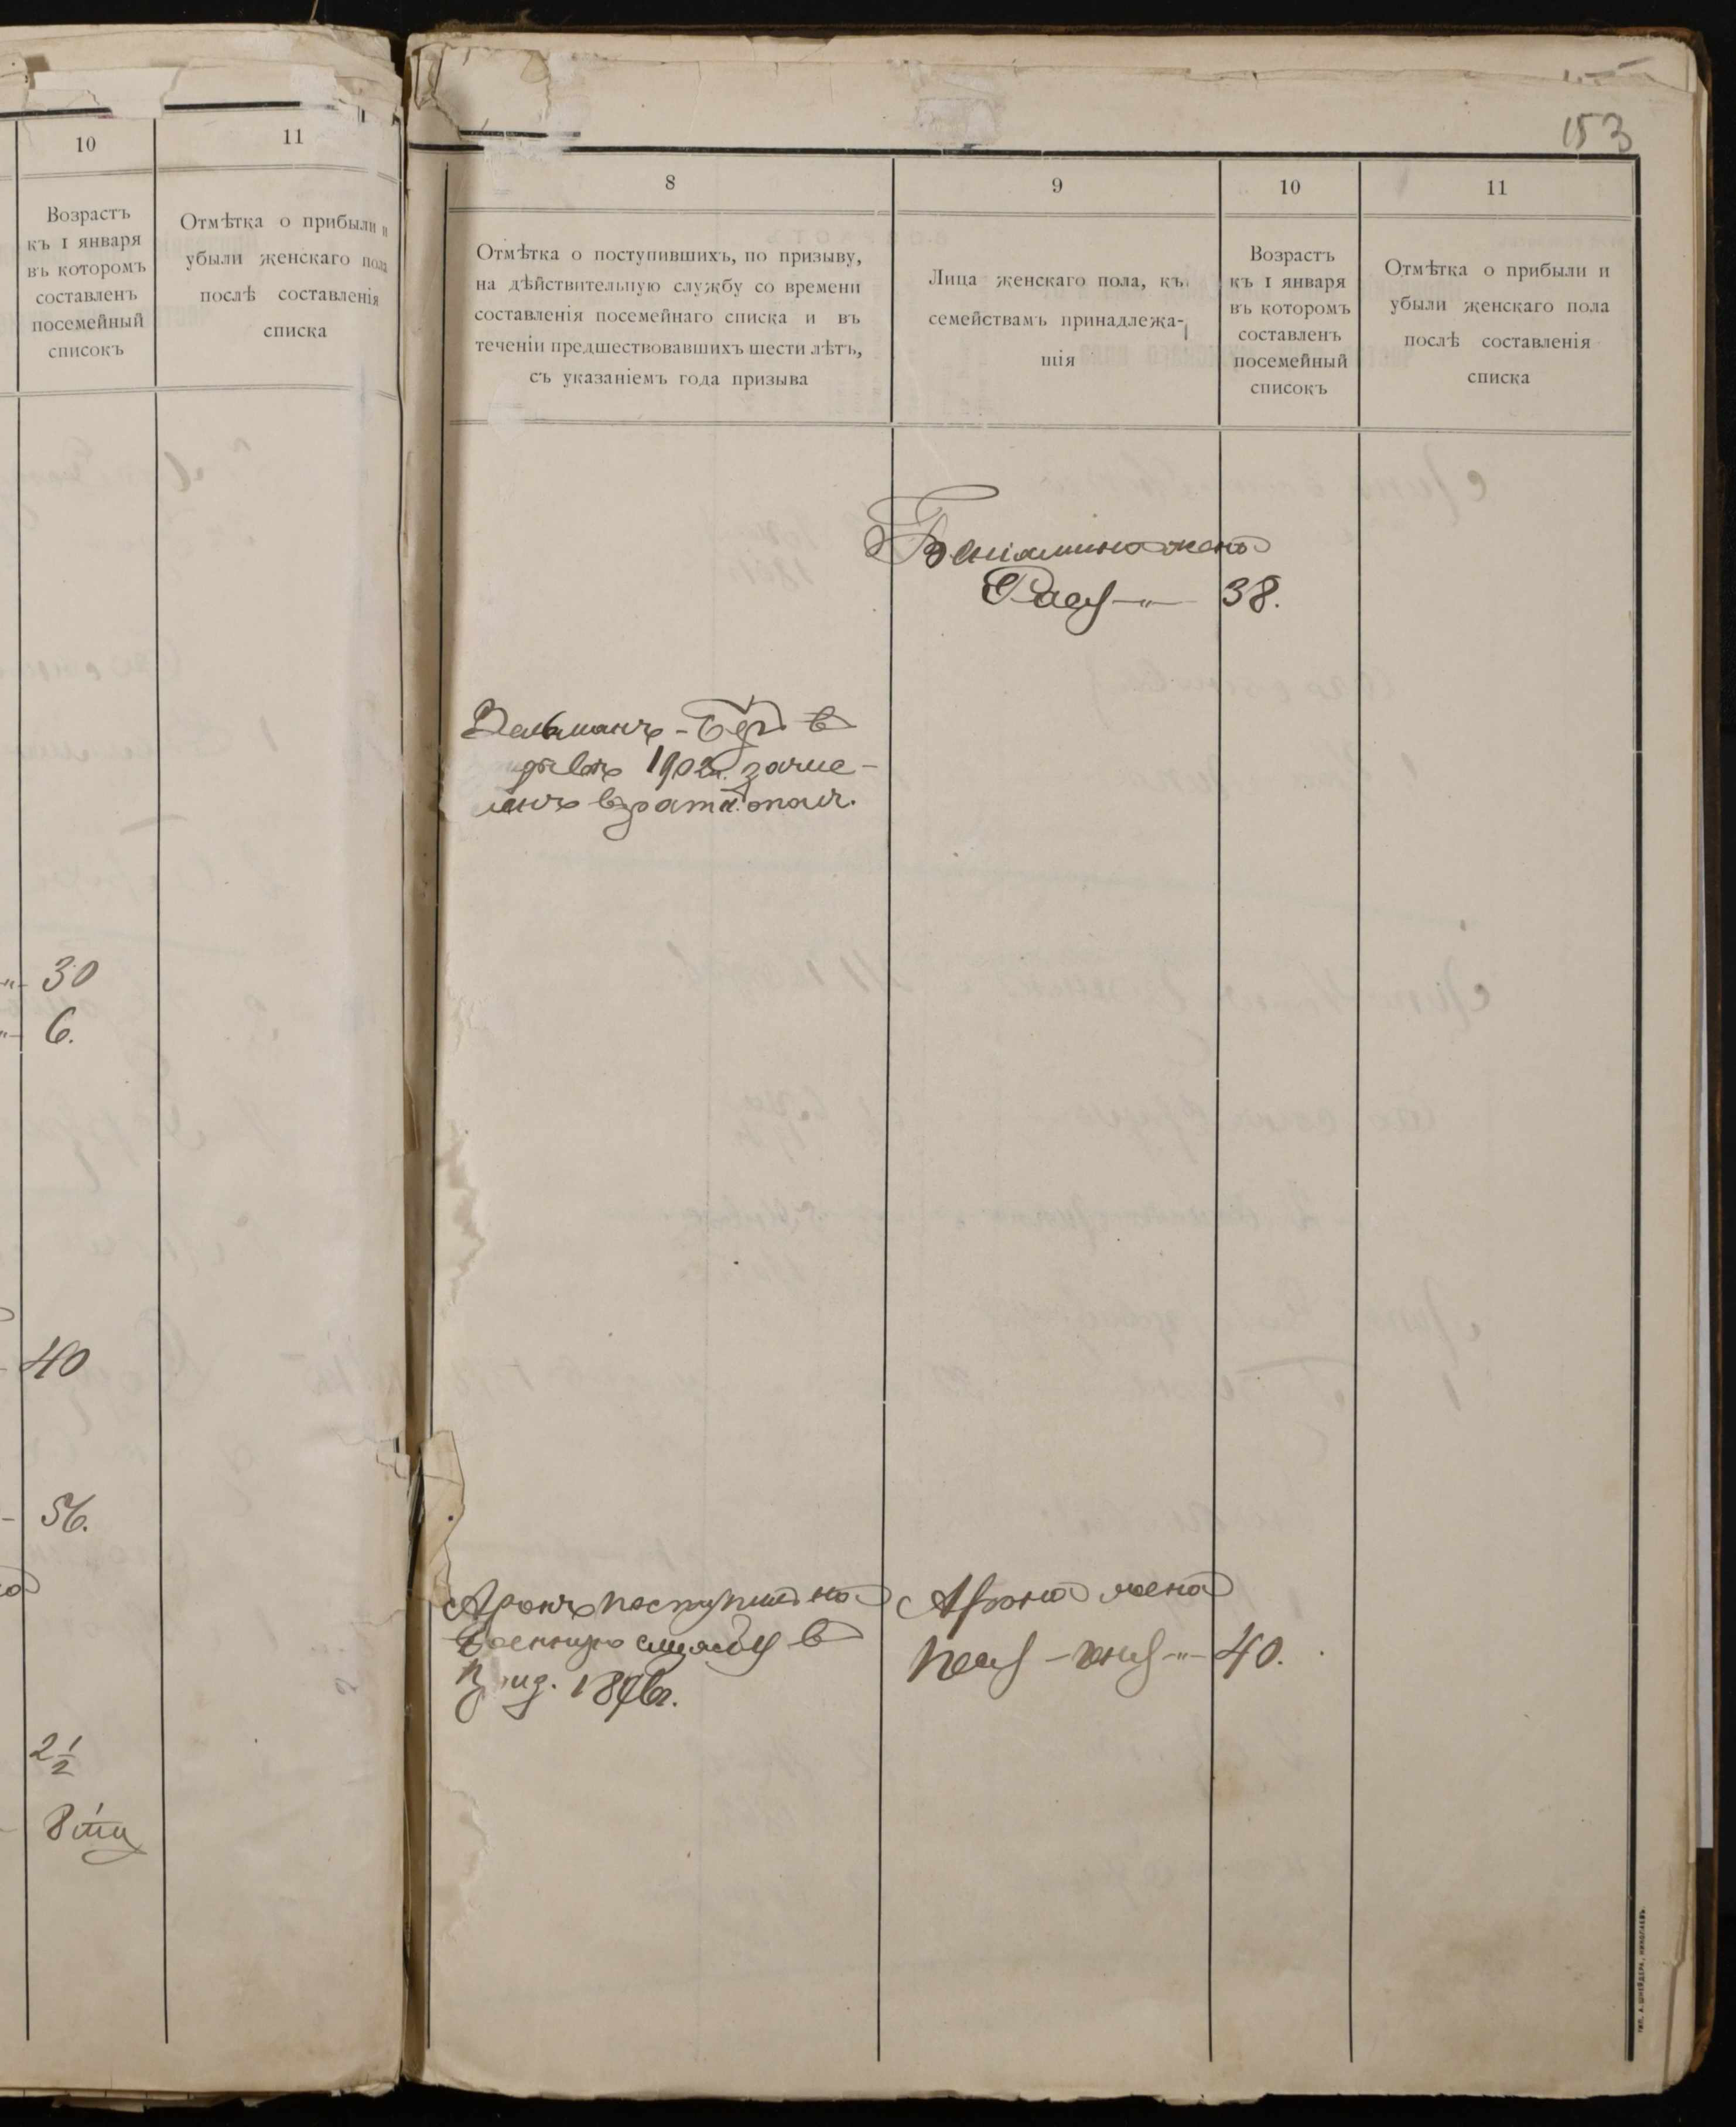 10
11
Возрастъ
къ 1 января
въ которомъ
составленъ
посемейный
списокъ
Отмѣтка о прибыли и
убыли женскаго пола
послѣ составленія
списка
30
6.
40
56.
2 1/2
8
153
8
9
10
11
Отмѣтка о поступившихъ, по призыву,
на дѣйствительную службу со времени
составленія посемейнаго списка и въ
теченіи предшествовавшихъ шести лѣтъ,
съ указаніемъ года призыва
Лица женскаго пола, къ
семействамъ принадлежа-
щія
Возрастъ
къ 1 января
въ которомъ
составленъ
посемейный
списокъ
Отмѣтка о прибыли и
убыли женскаго пола
послѣ составленія
списка
Веніамина жена
38.
1902 г. зачис-
ленъ въ рат. опол.
Аронъ поступилъ на
военную службу в
Арона жена
40.
ТИП. А. ШНЕЙДЕРА, НИКОЛАЕВЪ.